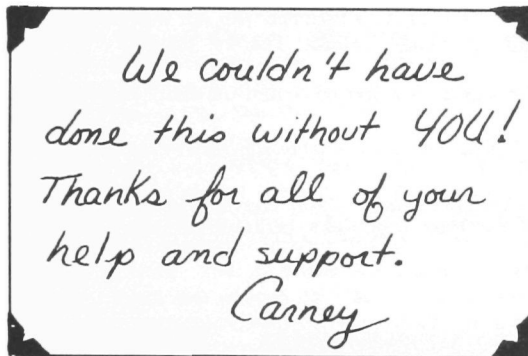 We couldn't have
done this without YOU!
Thanks for all of your
help and support.
Carney